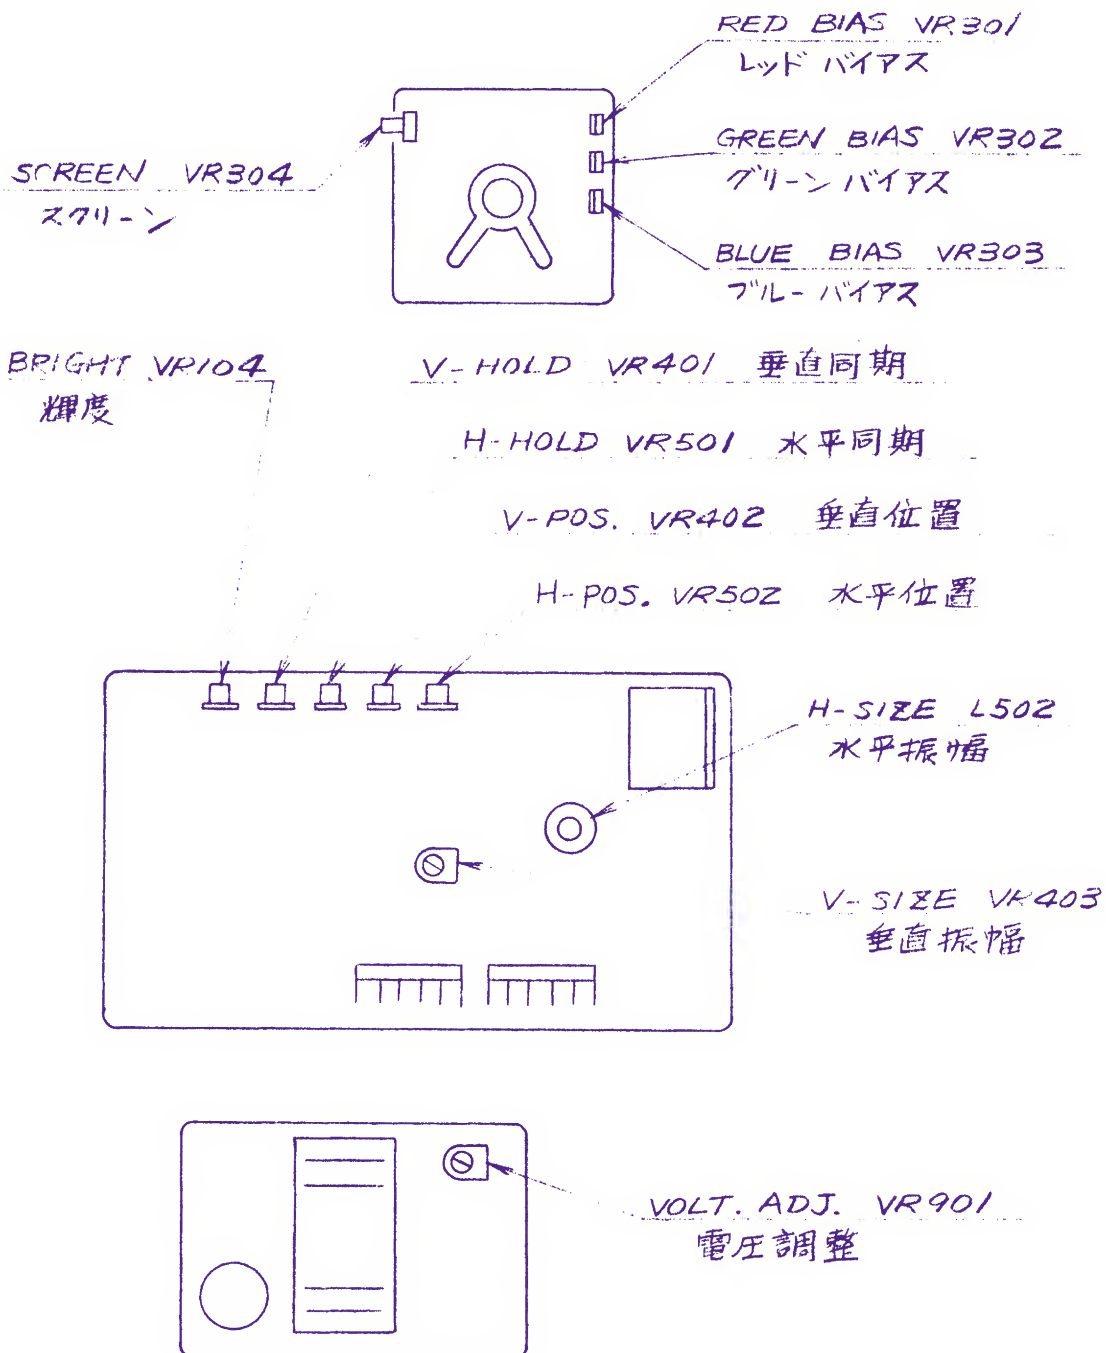 RED BIAS VR301
レッド バイアス
GREEN BIAS VR302
グリーン バイアス
SCREEN VR304
スクリーン
BLUE BIAS VR303
ブルー バイアス
BRIGHT VR104
輝度
V-HOLD VR401 垂直同期
H-HOLD VR501 水平同期
V-POS. VR402 垂直位置
H-POS. VR502 水平位置
H-SIZE L502
水平振幅
V-SIZE VR403
垂直振幅
VOLT. ADJ. VR901
電圧調整